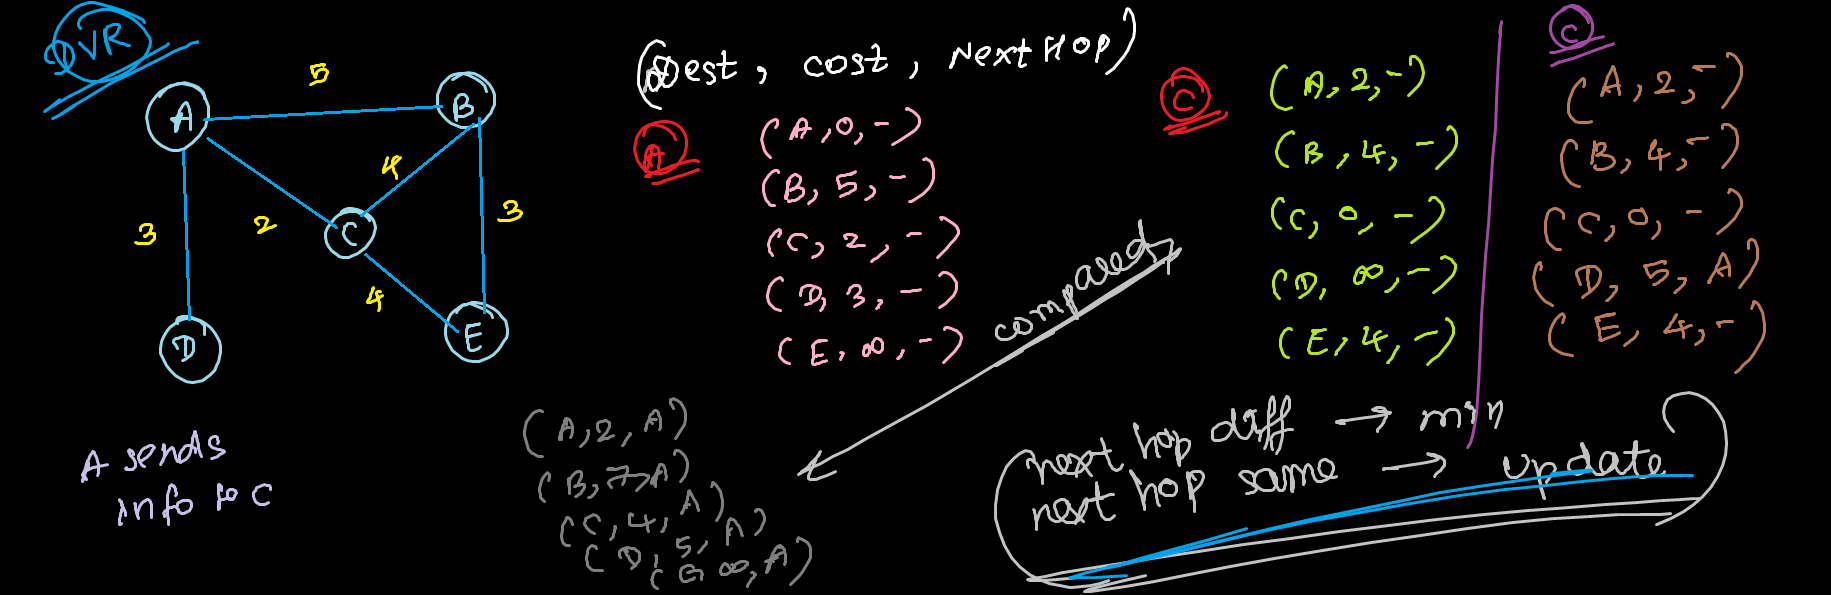 DVR
A
5
B
4
3
2
C
3
4
D
E
A sends
info to C
(Dest, cost, Next Hop)
A
(A,0,-)
(B,5,-)
(C,2,-)
(D,3,-)
(E,∞,-)
compared
(A,2,A)
(B,7,A)
(C,4,A)
(D,5,A)
(E,∞,A)
C
(A,2,-)
(B,4,-)
(C,0,-)
(D,∞,-)
(E,4,-)
C
(A,2,-)
(B,4,-)
(C,0,-)
(D,5,A)
(E,4,-)
next hop diff → min
next hop same → update